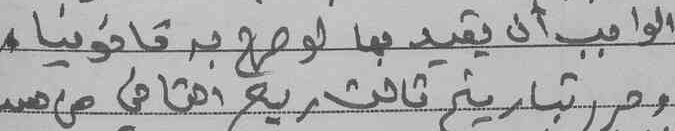 الواجب أن يقيد بها لوصرح به قانونيا
وحرر بتاريخ ثالث ربيع الثاني من